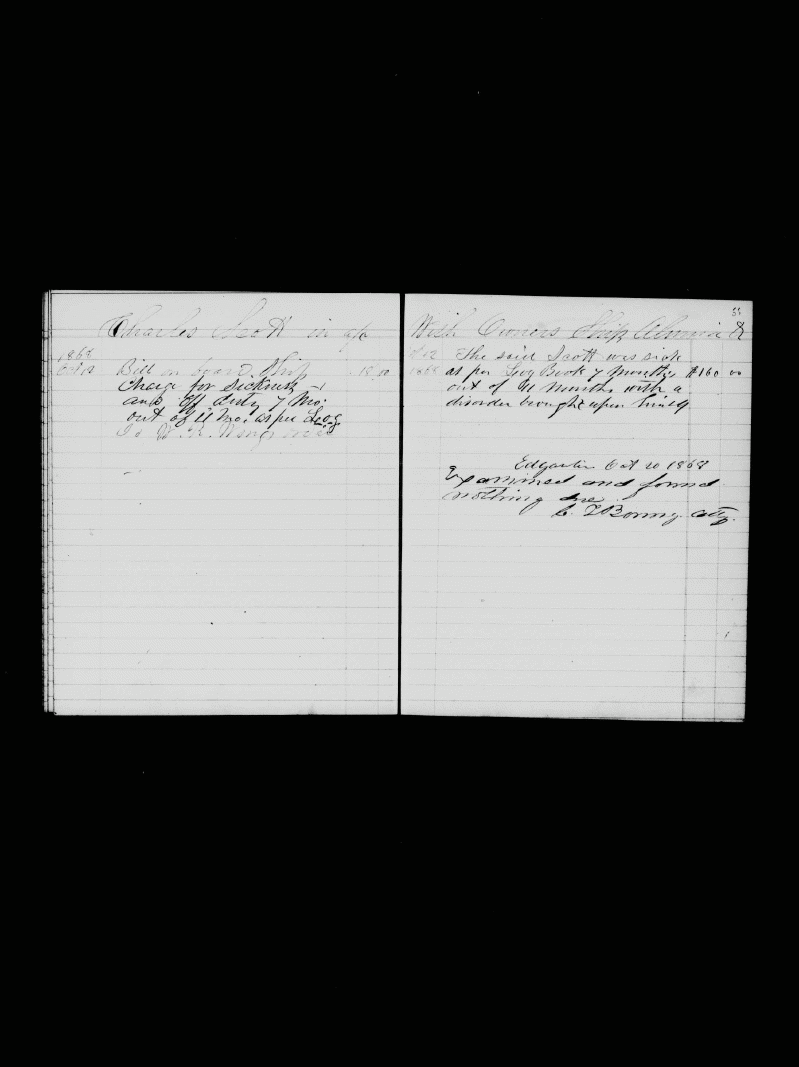 Charles Scott in a/c
1868
Oct 12 Bill on board Ship 18
Charge for Sickness
and off duty 7 Mo:
out of 11 Mo. as per Log
To W. H.
55
With Owners Ship Almira
Oct 12 The said Scott was sick
1868 as per Log Book 7 months $160 00
out of 11 months with a
disorder brought upon himself
Edgartn Oct 20 1868
Examined and found
nothing due
Atty.